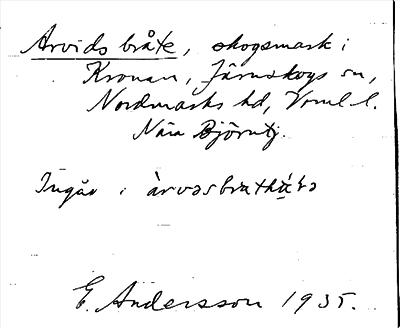 Arvidsbråte, skogsmark i
Kronan, Järnskogs sn,
Nordmarks hd, Vrml l.
Nära Björntj.
Ingår i
E. Andersson 1935.